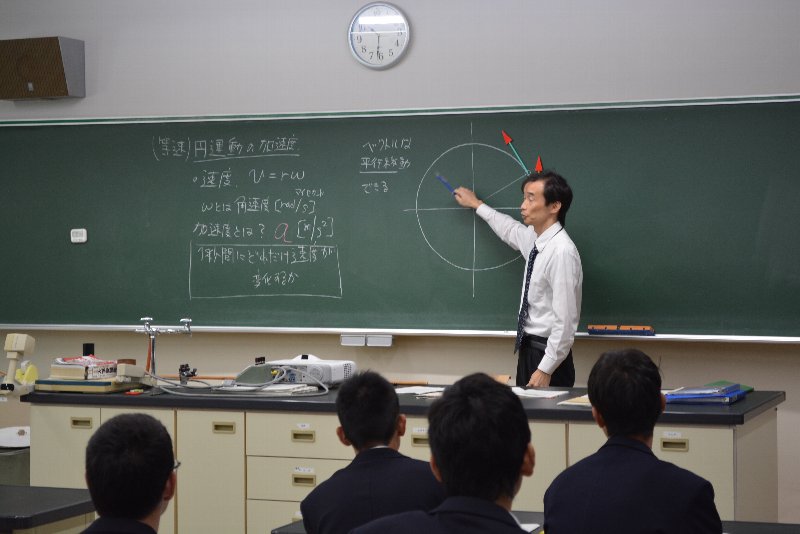 (等速)円運動の加速度.
・速度. v = rω
マイセカンド
ωとは 角速度 [rad/s]
加速度とは? a [m/s²]
1秒間にどれだけ速度が
変化するか
ベクトルは
平行移動
できる